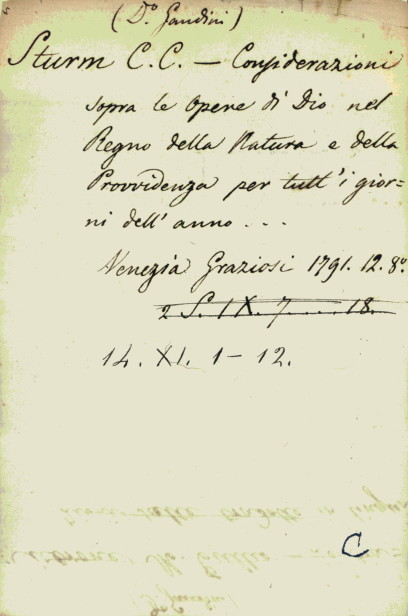 (D.º Gandini)
Sturm C. C. — Considerazioni
sopra le Opere di Dio nel
Regno della Natura e della
Provvidenza per tutt'i gior=
ni dell' anno...
Venezia Graziosi 1791. 12. 8º
2 S. IX. 7.....18.
14. XI. 1-12.
C